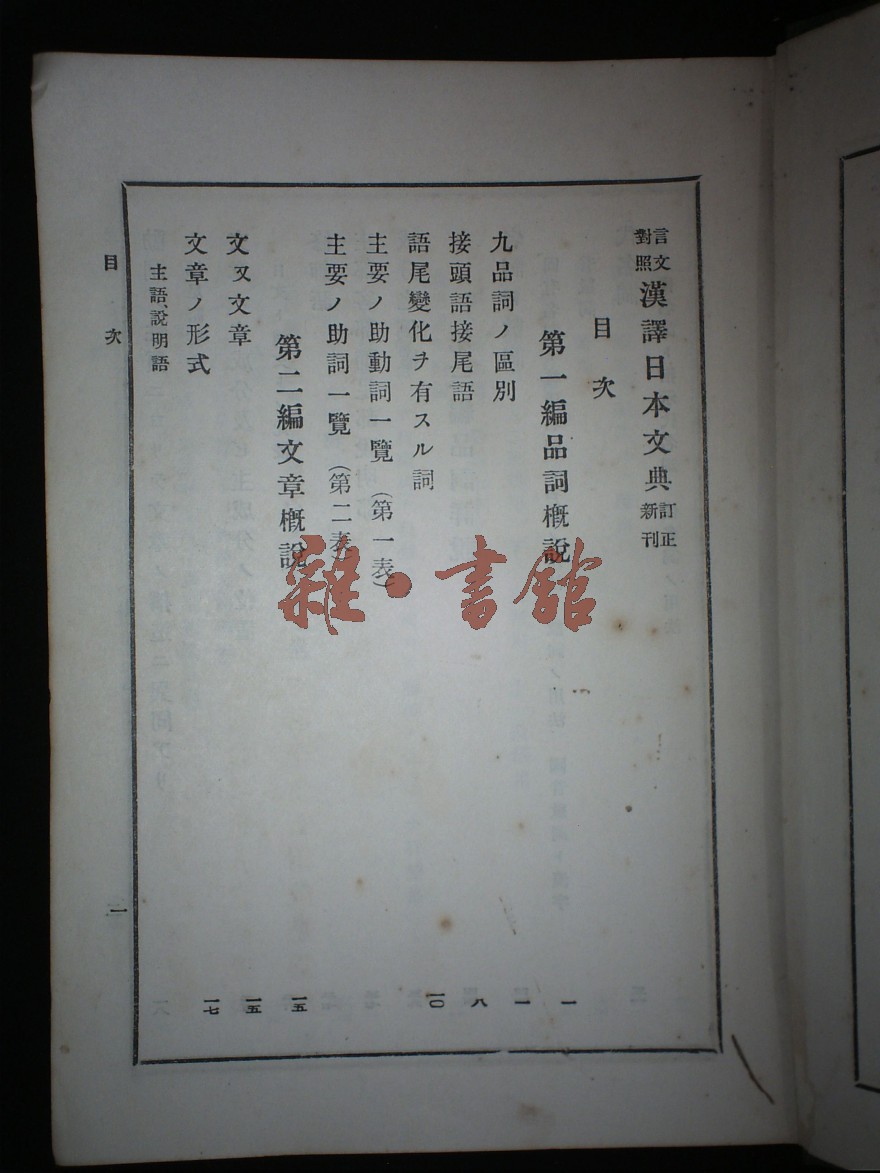 言文對照漢譯日本文典訂正新刊
目次
第一編品詞概說 一
九品詞ノ區別 一
接頭語接尾語 八
語尾變化ヲ有スル詞 一〇
主要ノ助動詞一覽(第一表)
主要ノ助詞一覽(第二表)
第二編文章概說 一五
文又文章 一五
文章ノ形式 一七
主語、說明語
目次
一
雜·書館